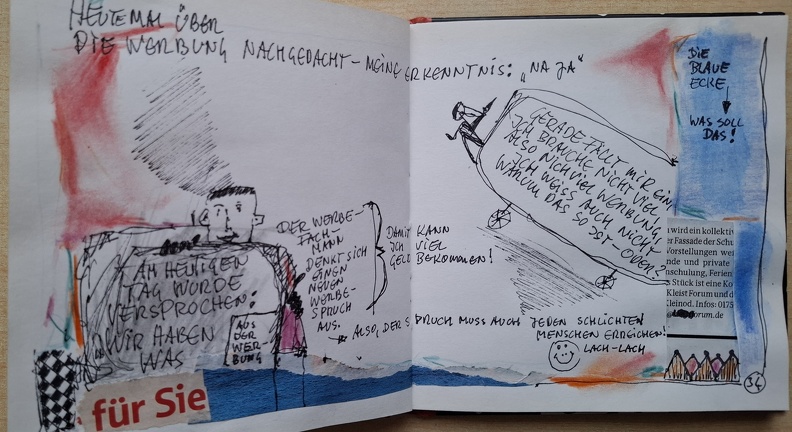 HEUTE MAL ÜBER
DIE WERBUNG NACHGEDACHT – MEINE ERKENNTNIS: „NA JA"
AM HEUTIGEN
TAG WURDE
VERSPROCHEN:
WIR HABEN
WAS
für Sie
AUS
DER WER-
BUNG
DER WERBE-
FACH-
MANN
DENKT SICH
EINEN
NEUEN
WERBE-
SPRUCH
AUS.
DAMIT KANN
ICH VIEL
GELD BEKOMMEN!
ALSO, DER SPRUCH MUSS AUCH JEDEN SCHLICHTEN
MENSCHEN ERREICHEN!
LACH-LACH
GERADE FÄLLT MIR EIN
ICH BRAUCHE NICHT VIEL
ALSO NICH VIEL WERBUNG,
ICH WEISS AUCH NICHT
WARUM DAS SO IST ODER?
DIE
BLAUE
ECKE,
WAS SOLL
DAS!
wird ein kollektiv
er Fassade der Schu
Vorstellungen wer
nde und private
nschulung, Ferien
s Stück ist eine Ko
Kleist Forum und d
Kleinod. Infos: 0175
orum.de
34